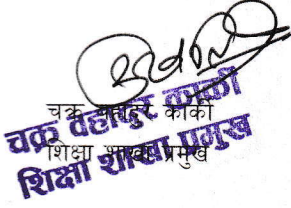 चक्र बहादुर कार्की
शिक्षा शाखा प्रमुख
चक्र वहादुर कार्की
शिक्षा शाखा प्रमुख